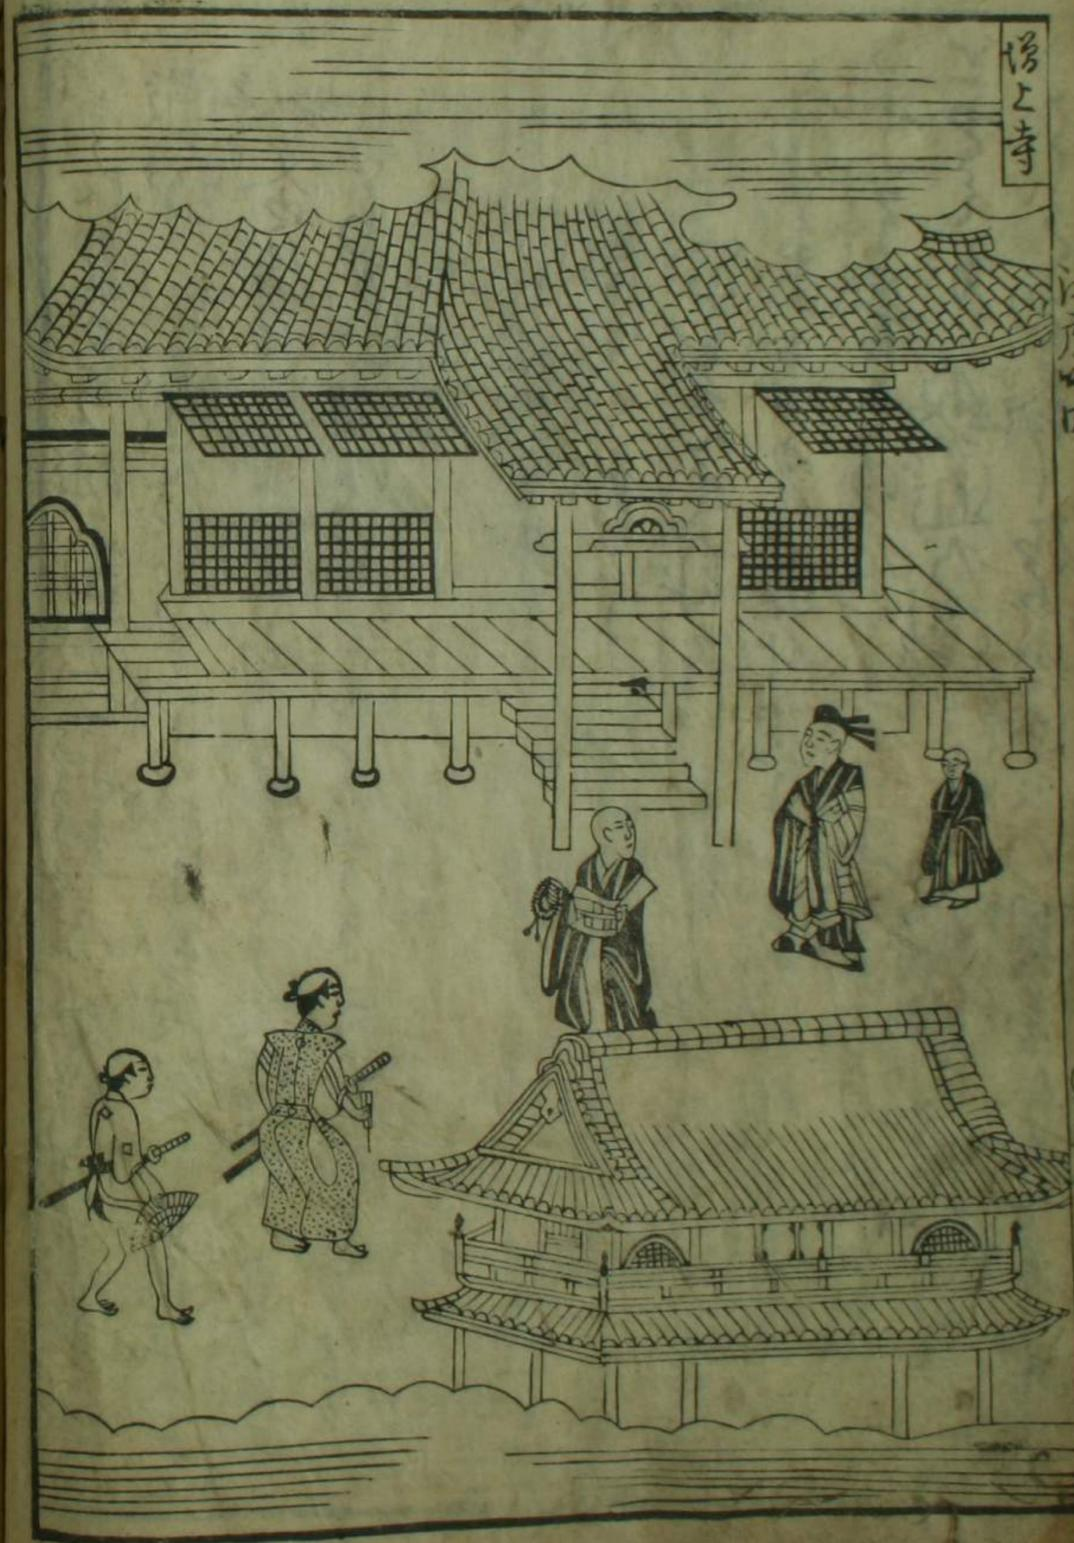 増上寺